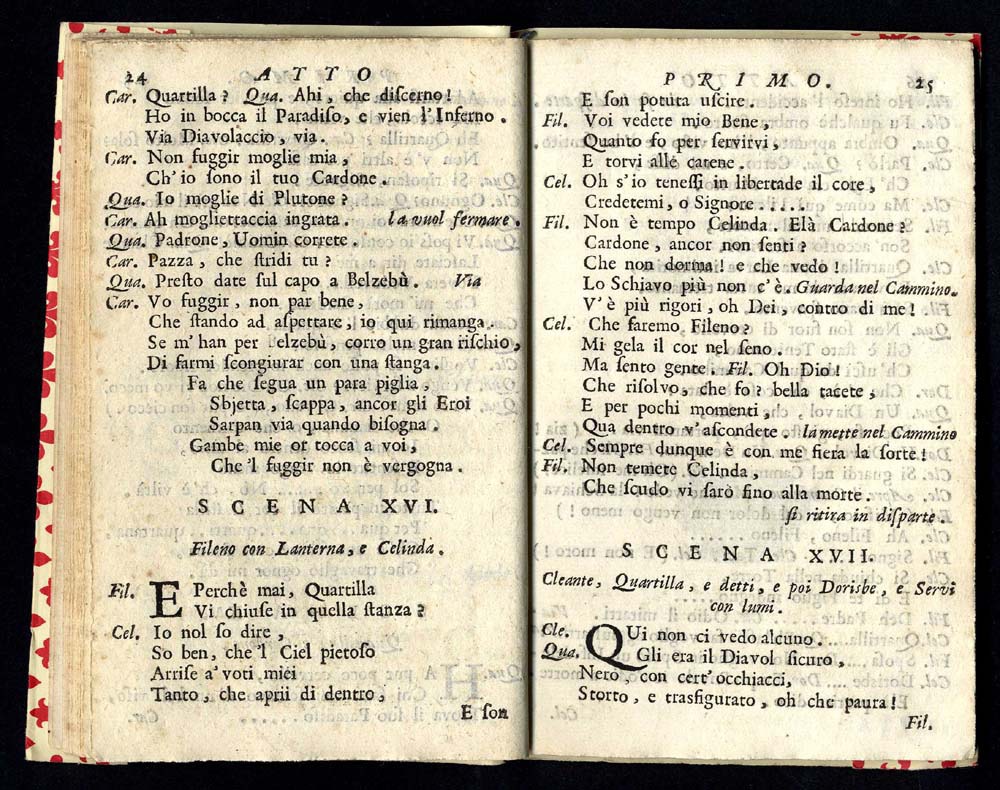 24 ATTO
Car. Quartilla? Qua. Ahi, che diſcerno!
Ho in bocca il Paradiſo, e vien l'Inferno.
Via Diavolaccio, via.
Car. Non fuggir moglie mia,
Ch'io ſono il tuo Cardone.
Qua. Io moglie di Plutone?
Car. Ah mogliettaccia ingrata. la vuol fermare.
Qua. Padrone, Uomin correte.
Car. Pazza, che ſtridi tu?
Qua. Preſto date ſul capo a Belzebù. Via
Car. Vo fuggir, non par bene,
Che ſtando ad aſpettare, io qui rimanga.
Se m'han per elzebù, corro un gran riſchio,
Di farmi ſcongiurar con una ſtanga.
Fa che ſegua un para piglia,
Sbjetta, ſcappa, ancor gli Eroi
Sarpan via quando biſogna.
Gambe mie or tocca a voi,
Che 'l fuggir non è vergogna.
SCENA XVI.
Fileno con Lanterna, e Celinda.
Fil. E Perchè mai, Quartilla
Vi chiuſe in quella ſtanza?
Cel. Io nol ſo dire,
So ben, che 'l Ciel pietoſo
Arriſe a' voti miei
Tanto, che aprii di dentro,
E ſon
PRIMO. 25
E ſon potuta uſcire.
Fil. Voi vedere mio Bene,
Quanto fo per ſervirvi,
E torvi alle catene.
Cel. Oh s'io teneſſi in libertade il core,
Credetemi, o Signore . . . .
Fil. Non è tempo Celinda. Elà Cardone?
Cardone, ancor non ſenti?
Che non dorma! e che vedo!
Lo Schiavo più non c'è. Guarda nel Cammino.
V'è più rigori, oh Dei, contro di me!
Cel. Che faremo, Fileno?
Mi gela il cor nel ſeno.
Ma ſento gente. Fil. Oh Dio!
Che riſolvo, che fo? bella tacete,
E per pochi momenti,
Qua dentro v'aſcondete. la mette nel Cammino
Cel. Sempre dunque è con me fiera la ſorte!
Fil. Non temete Celinda,
Che ſcudo vi ſarò fino alla morte.
ſi ritira in diſparte.
SCENA XVII.
Cleante, Quartilla, e detti, e poi Dorisbe, e Servi
con lumi.
Cle. QUi non ci vedo alcuno.
Qua. Gli era il Diavol ſicuro,
Nero, con cert'occhiacci,
Storto, e trasfigurato, oh che paura!
Fil.